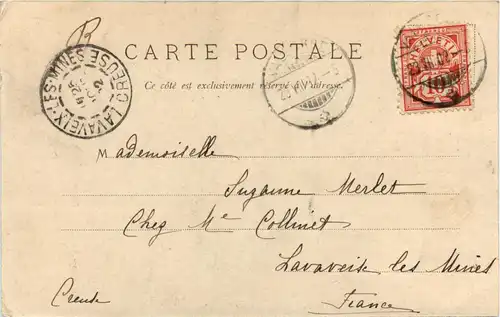 R
CARTE POSTALE
Ce côté est exclusivement réservé à l'adresse.
LAVAVEIX-LES-MINES
CREUSE
HELVETIA
10
Mademoiselle
Suzanne Merlet
Chez Me Collinet
Lavaveix les Mines
Creuse
France